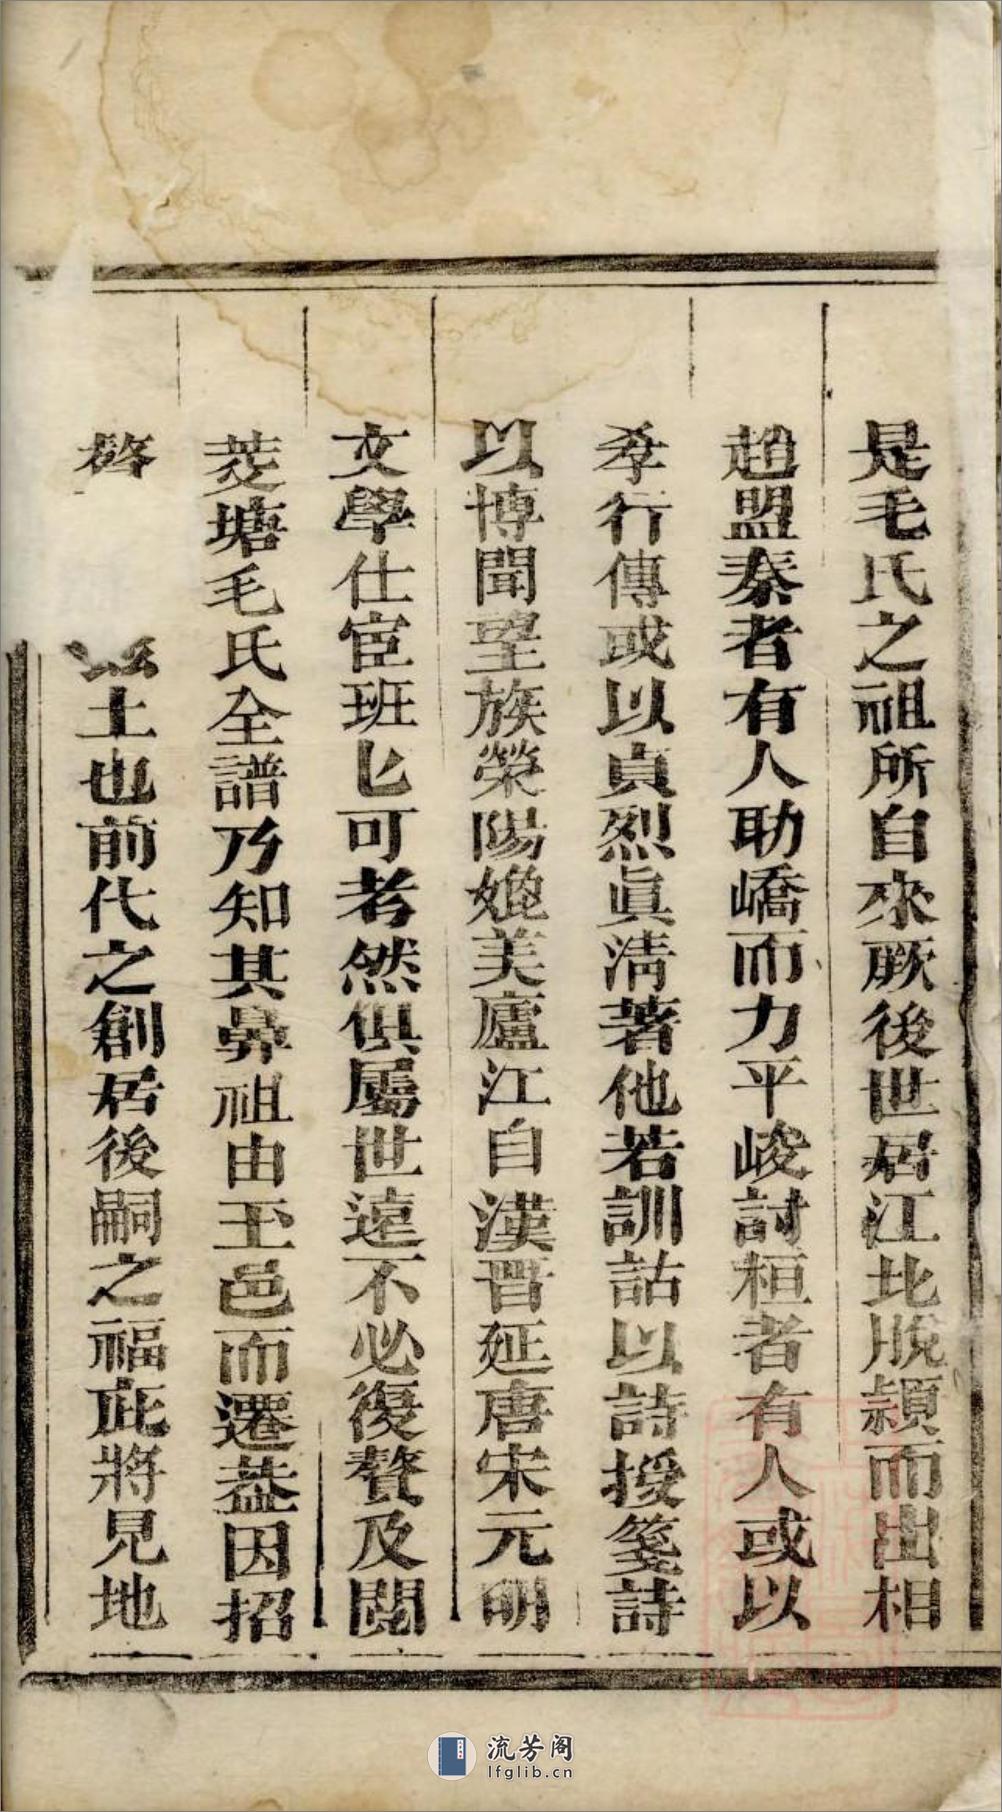 是毛氏之祖所自來厥後世居江北脫穎而出相
趙盟秦者有人助嶠而力平峻討桓者有人或以
孝行傳或以貞烈眞淸著他若訓詁以詩授箋詩
以博聞望族榮陽媲美廬江自漢晋延唐宋元明
文學仕宦班匕可考然俱屬世遠不必復贅及閱
菱塘毛氏全譜乃知其鼻祖由玉邑而遷葢因招
土也前代之創居後嗣之福庇將見地
流芳阁
lfglib.cn